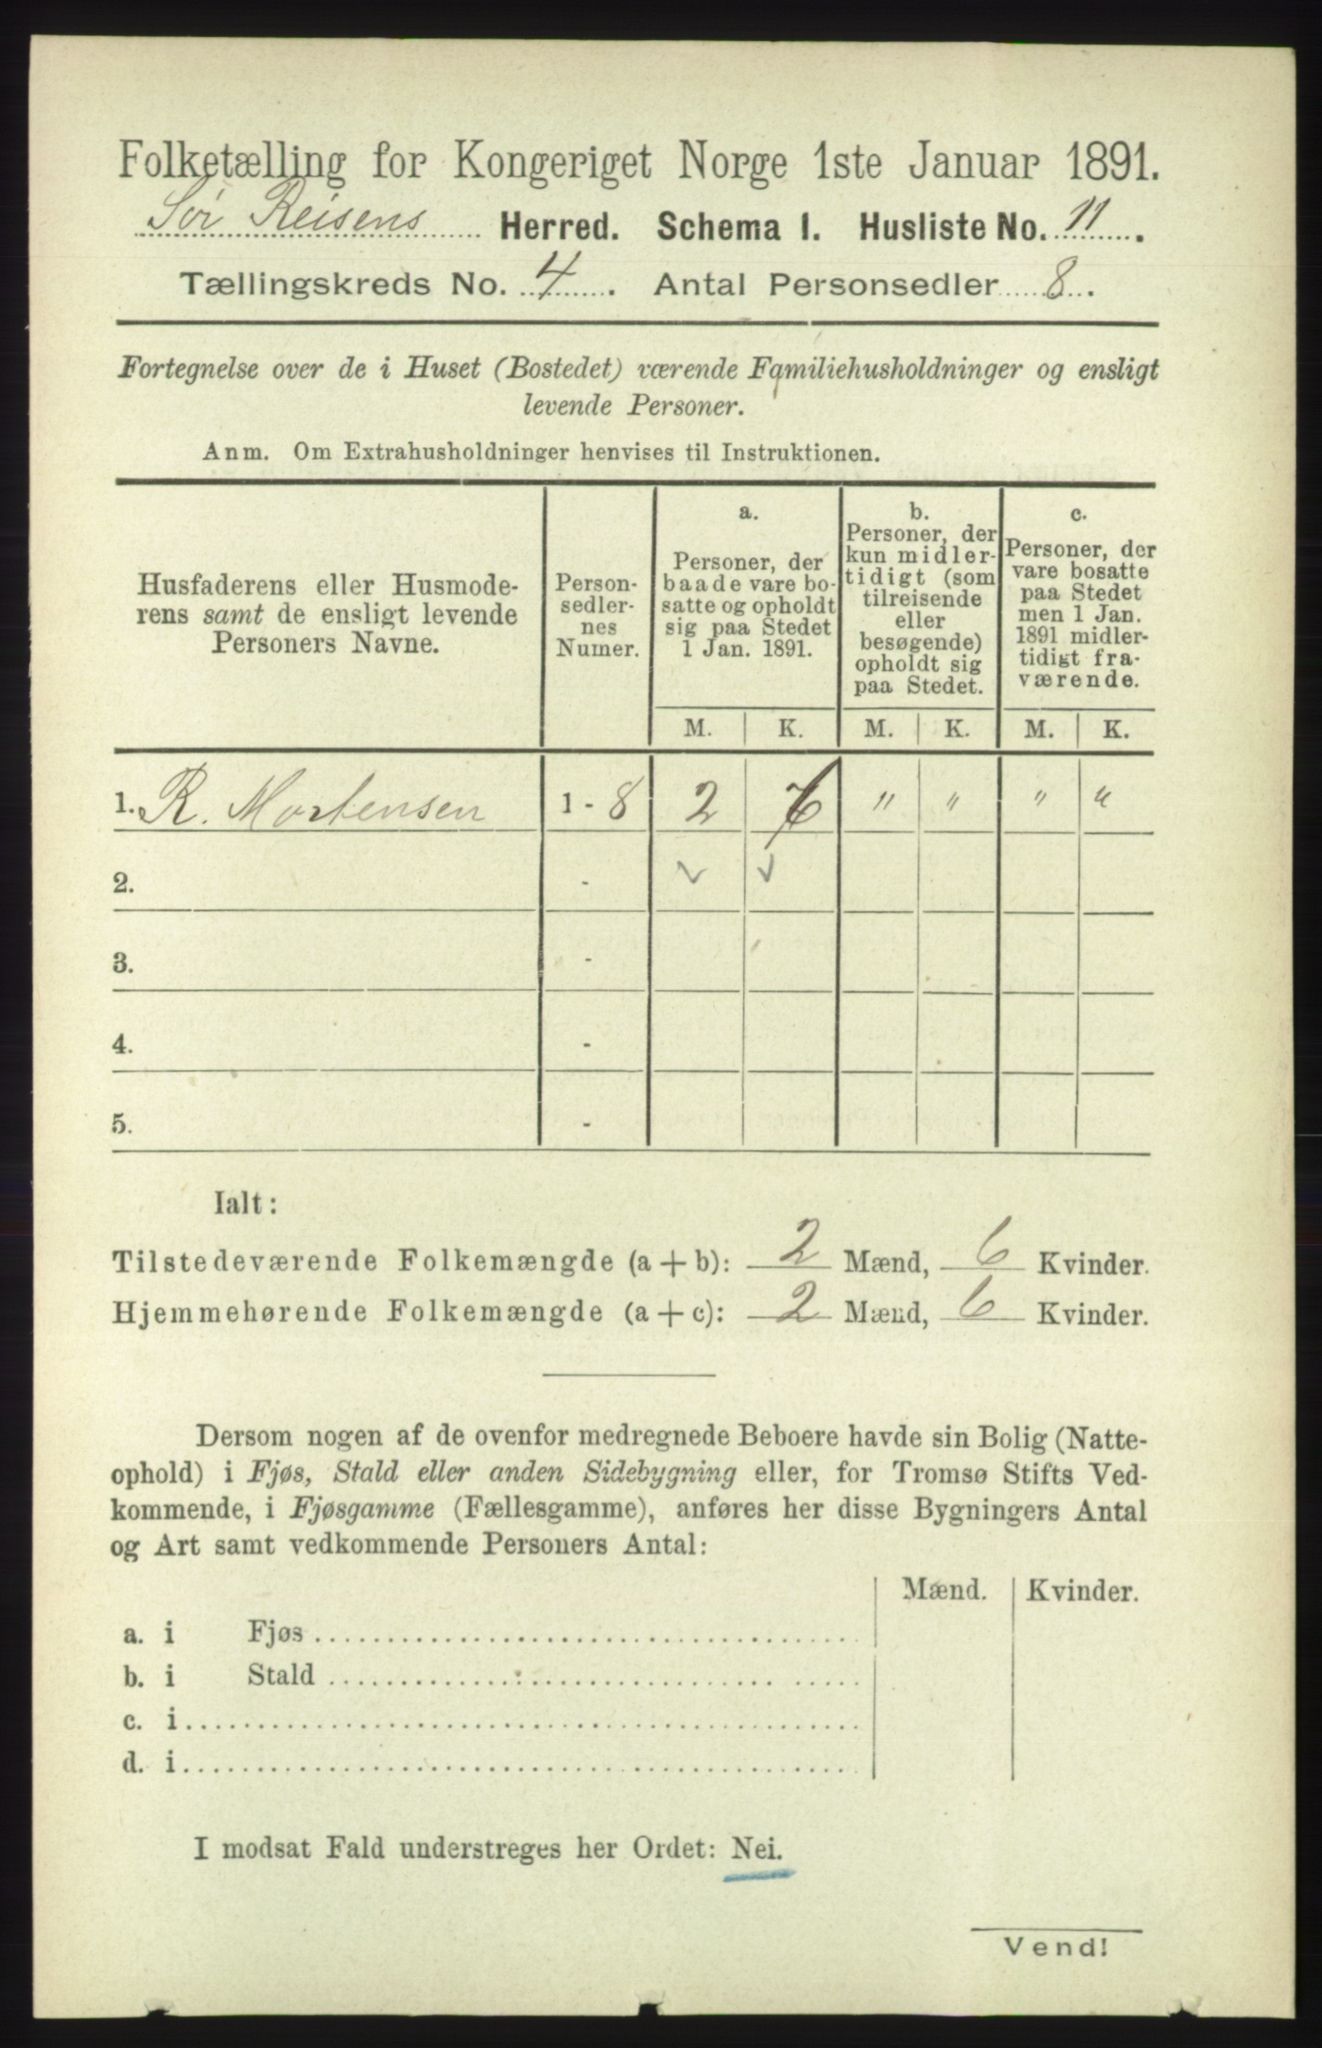 Folketælling for Kongeriget Norge 1ste Januar 1891.
Sör Reisens Herred. Schema I. Husliste No. 11.
Tællingskreds No. 4. Antal Personsedler 8.
Fortegnelse over de i Huset (Bostedet) værende Familiehusholdninger og ensligt
levende Personer.
Anm. Om Extrahusholdninger henvises til Instruktionen.
Husfaderens eller Husmode-
rens samt de ensligt levende
Personers Navne.
Person-
sedler-
nes
Numer.
a.
Personer, der
baade vare bo-
satte og opholdt
sig paa Stedet
1 Jan. 1891.
b.
Personer, der
kun midler-
tidigt (som
tilreisende
eller
besøgende)
opholdt sig
paa Stedet.
c.
Personer, der
vare bosatte
paa Stedet
men 1 Jan.
1891 midler-
tidigt fra-
værende.
M. K. M. K. M. K.
1. R. Mortensen 1 - 8 2 6 " " " "
2. - ✓ ✓
3. -
4. -
5. -
Ialt:
Tilstedeværende Folkemængde (a + b): 2 Mænd, 6 Kvinder.
Hjemmehørende Folkemængde (a + c): 2 Mænd, 6 Kvinder.
Dersom nogen af de ovenfor medregnede Beboere havde sin Bolig (Natte-
ophold) i Fjøs, Stald eller anden Sidebygning eller, for Tromsø Stifts Ved-
kommende, i Fjøsgamme (Fællesgamme), anføres her disse Bygningers Antal
og Art samt vedkommende Personers Antal:
Mænd. Kvinder.
a. i Fjøs
b. i Stald
c. i
d. i
I modsat Fald understreges her Ordet: Nei.
Vend!